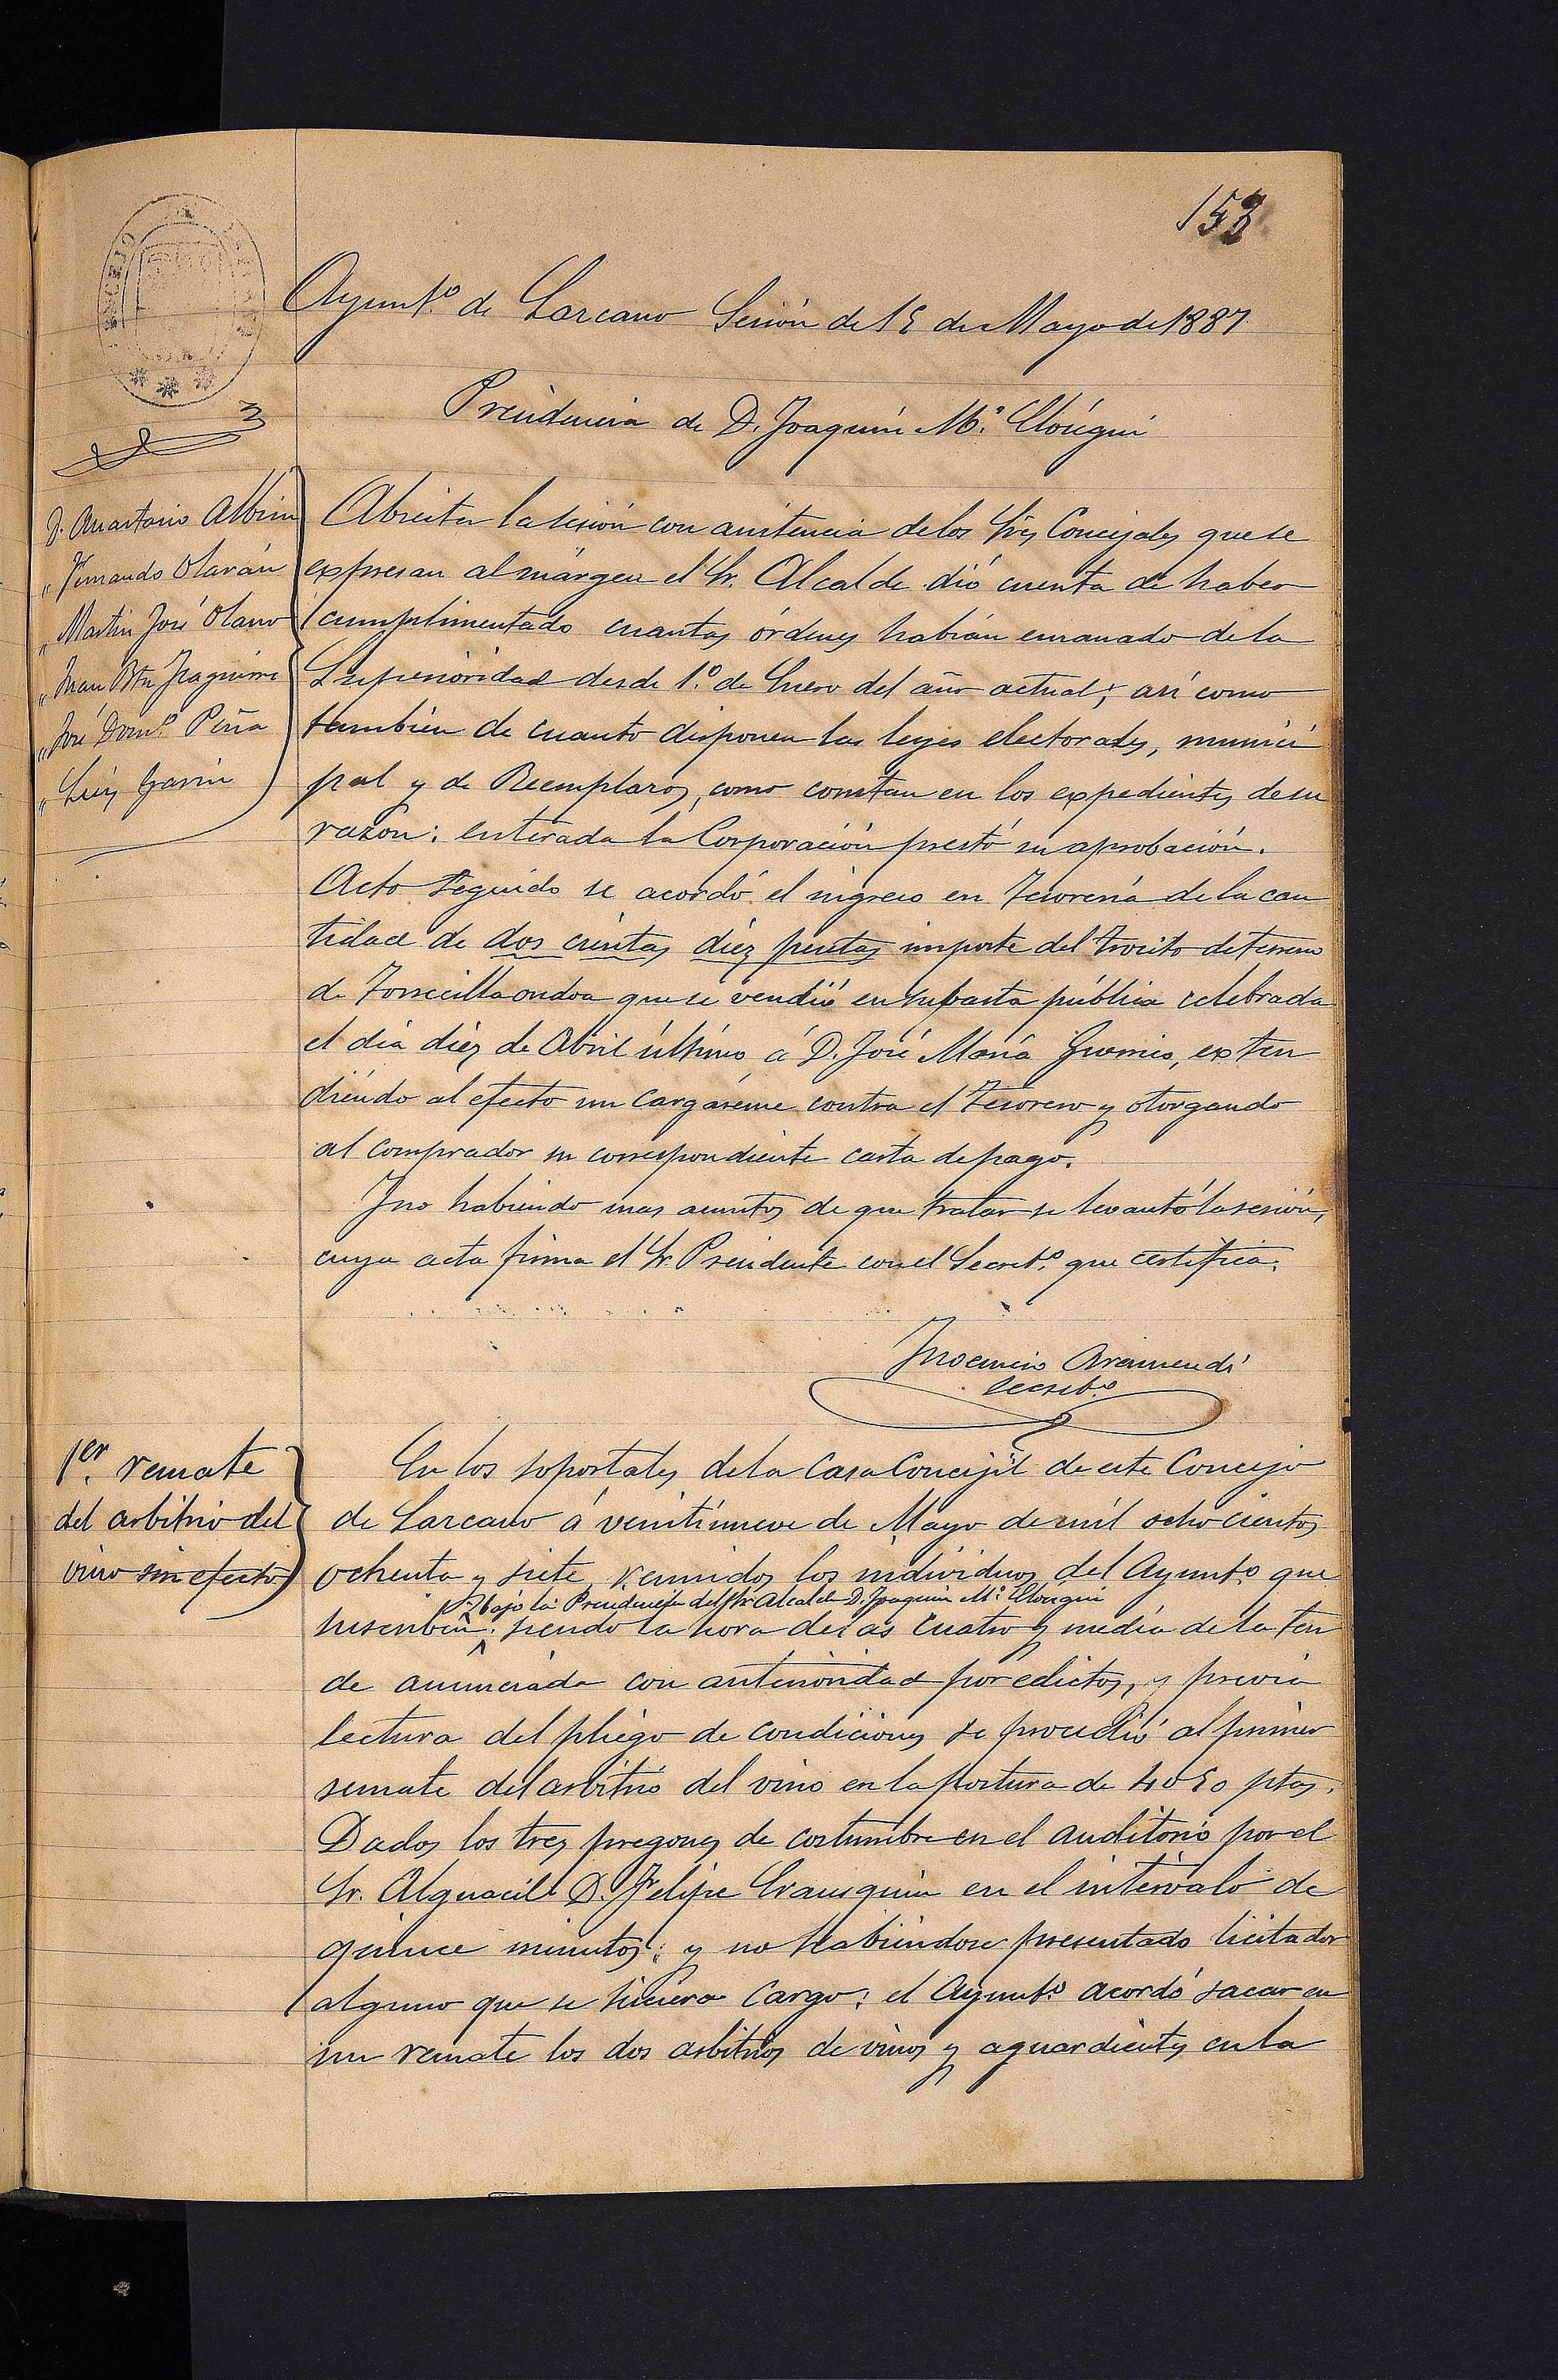 153
Ayunt.º de Lazcano Sesión de 15 de Mayo de 1887
Presidencia de D. Joaquín M.ª Elósegui
D. Anastasio Albisu
„ Fernando Olarán
„ Martin José Olano
„ Juan Btu Izaguirre
„ José Dom.º Peña
„ Luis Garin
Abierta la sesión con asistencia de los Sres Concejales que se
expresan al márgen el Sr. Alcalde dió cuenta de haber
cumplimentado cuantas órdenes habián emanado de la
Superioridad desde 1.º de Enero del año actual; así como
tambien de cuanto disponen las leyes electorales, munici
pal y de Reemplazos, como constan en los expedientes de su
razón: enterada la Corporación prestó su aprobación.
Acto seguido se acordó el ingreso en Tesorería de la can
tidad de dos cientas diez pesetas importe del trocito de terreno
de que se vendió en subasta pública celebrada
el día diez de Abril último á D. José María exten
diendo al efecto un cargáreme contra el Tesorero y otorgando
al comprador su correspondiente carta de pago.
Y no habiendo mas asuntos de que tratar se levantó la sesión,
cuya acta firma el Sr. Presidente con el Secret.º que certifica.
Inocencio Aramendi
Secret.º
1.er remate
del arbitrio del
vino sin efecto
En los soportales de la Casa Concejil de este Concejo
de Lazcano á veintinueve de Mayo de mil ocho cientos
ochenta y siete, reunidos los individuos del Ayunt.º que
bajo la Presidencia del Sr Alcalde D. Joaquin M.ª Elósegui
suscriben: siendo la hora de las cuatro y media de la tar
de anunciada con anterioridad por edictos, y previa
lectura del pliego de condiciones se procedió al primer
remate del arbitrio del vino en la postura de 4050 ptas.
Dados los tres pregones de costumbre en el auditorio por el
Sr. Alguacil D. Felipe Erausquin en el intérvalo de
quince minutos; y no habiéndose presentado licitador
alguno que se hiciera cargo: el Ayunt.º acordó sacar en
un remate los dos arbitrios de vinos y aguardientes en la